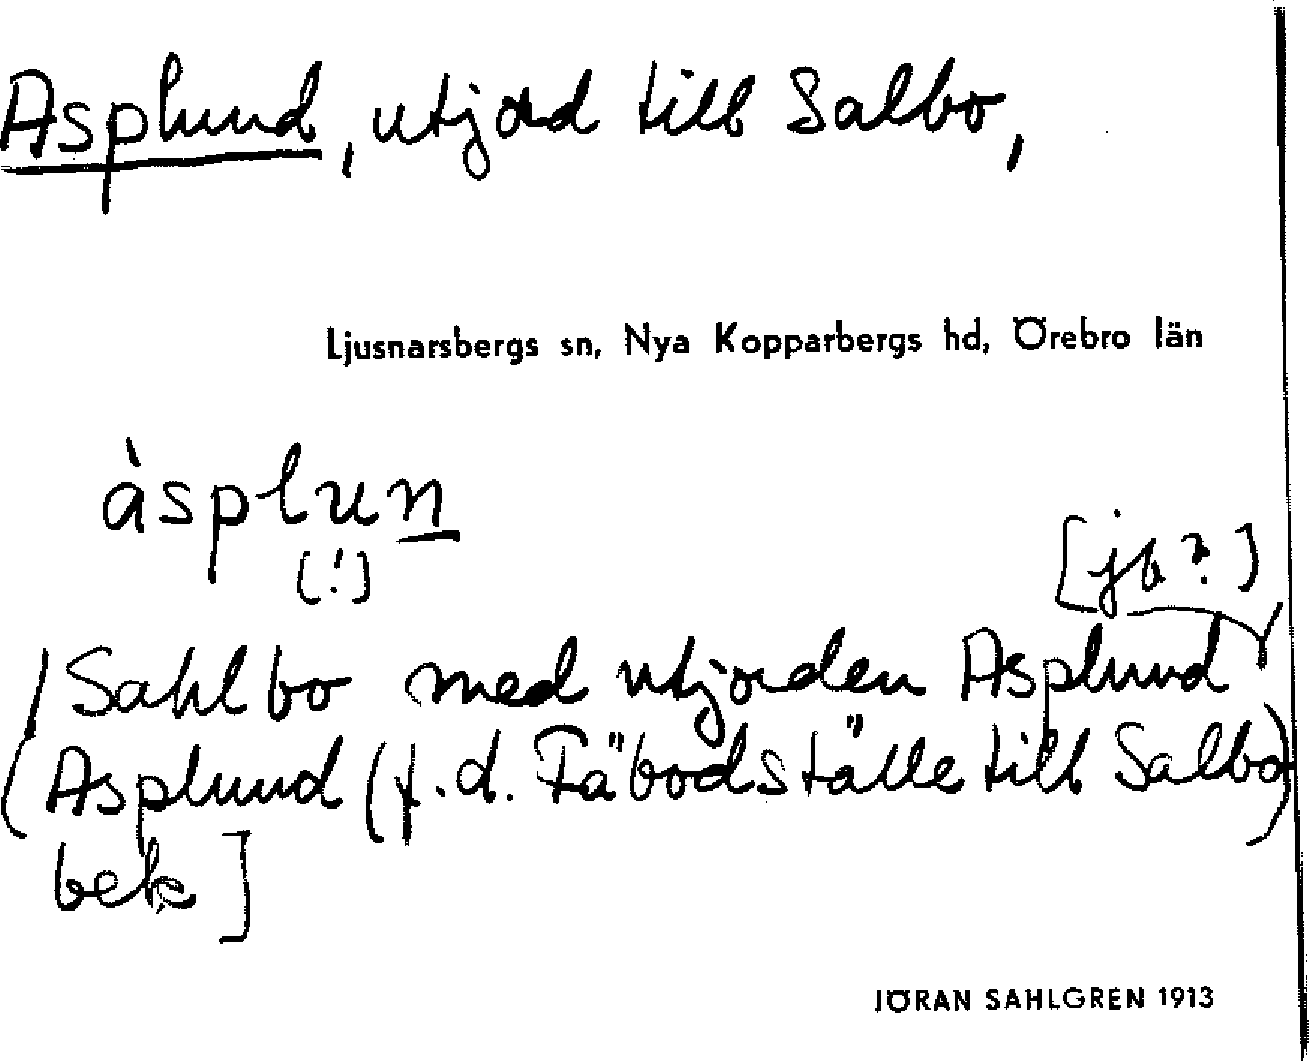 Asplund, utjord till Salbo,
Ljusnarsbergs sn, Nya Kopparbergs hd, Örebro län
àsplun
[!]
[jb?]
Sahlbo med utjorden Asplund
Asplund (f.d. Fäbodställe till Salbo)
bek]
JÖRAN SAHLGREN 1913